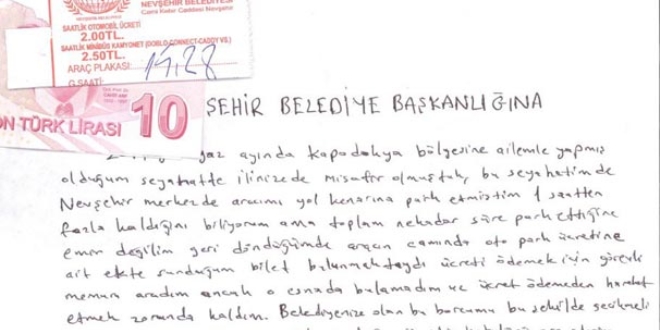 NEVŞEHİR BELEDİYESİ
Camii Kebir Caddesi Nevşehir
SAATLİK OTOMOBİL ÜCRETİ
2.00TL.
SAATLİK MİNİBÜS KAMYONET (DOBLO-CONNECT-CADDY VS.)
2.50TL.
ARAÇ PLAKASI:
G.SAATİ: 14,28
ON TÜRK LİRASI 10
ŞEHİR BELEDİYE BAŞKANLIĞINA
ayında Kapadokya bölgesine ailemle yapmış
olduğum seyahatte ilinizede misafir olmuştuk, bu seyahatimde
Nevşehir merkezde aracımı yol kenarına park etmiştim 1 saatten
fazla kaldığını biliyorum ama toplam nekadar süre park ettiğine
emin değilim geri döndüğümde araçın camında oto park ücretine
ait ekte sunduğum bilet bulunmaktaydı ücreti ödemek için görevli
memuru aradım ancak o esnada bulamadım ve ücret ödemeden hareket
etmek zorunda kaldım. Belediyenize olan bu borcumu bu şekilde gecikmeli